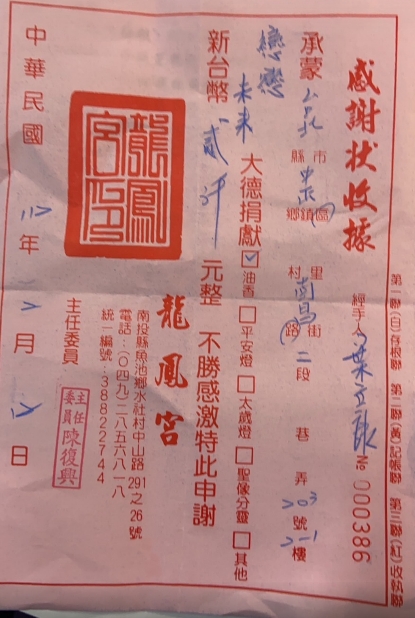 感謝狀收據
第一聯(白)存根聯 第二聯(黃)記帳聯 第三聯(紅)收執聯
經手人 № 000386
承蒙 台北 縣市 中正 鄉鎮區 村里 南昌 路街 二段 巷 弄 203號 2-1樓
戀戀未來 大德捐獻 ☑油香 □平安燈 □太歲燈 □聖像分靈 □其他
新台幣 貳仟 元整 不勝感激特此申謝
龍鳳宮
南投縣魚池鄉水社村中山路291之26號
電話:(〇四九)二八五六八一八
統一編號:38822744
主任委員
主任委員 陳復興
龍鳳宮印
中華民國 年 月 日